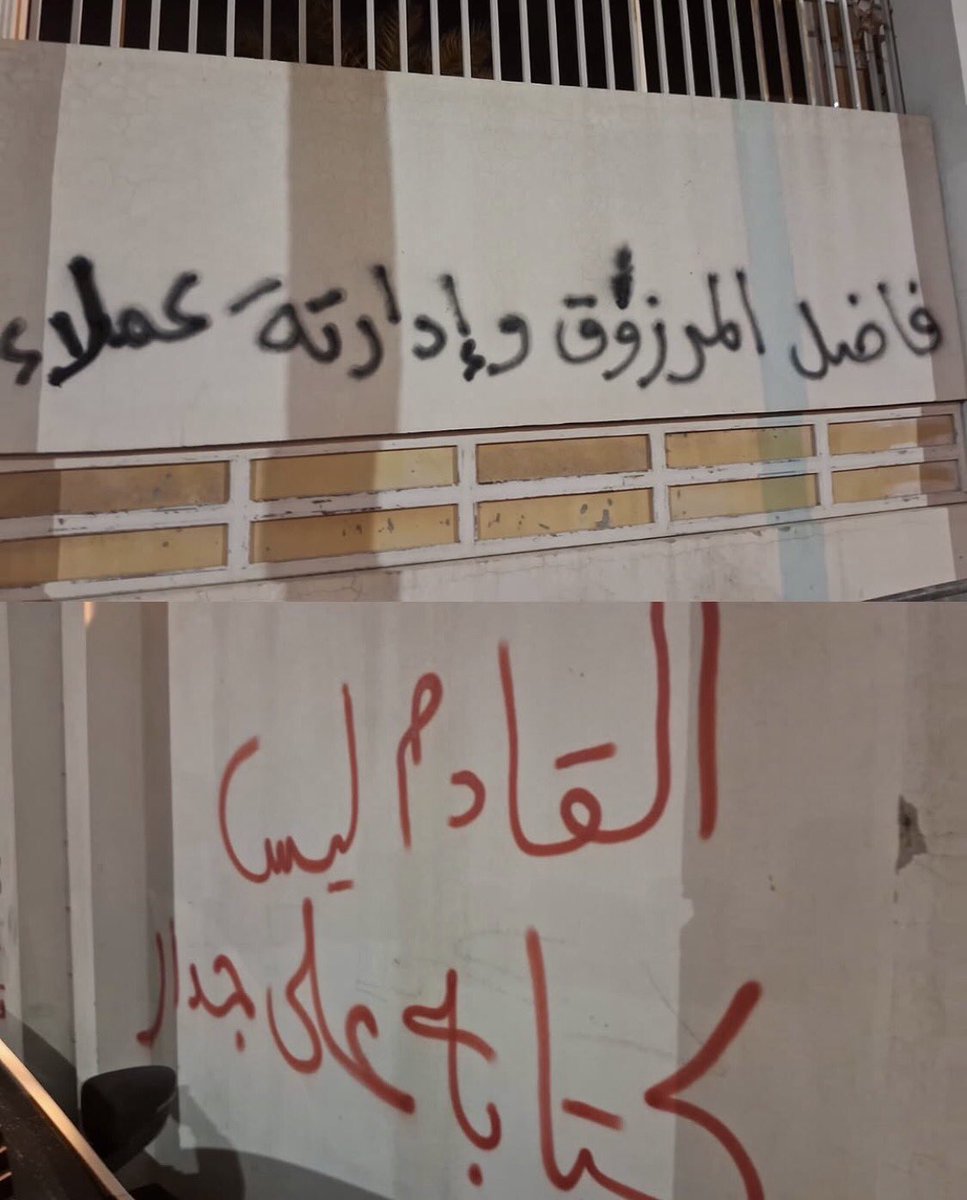 فاضل المرزوق وإدارتة عملاء
القادم ليس
كتابة على جدار